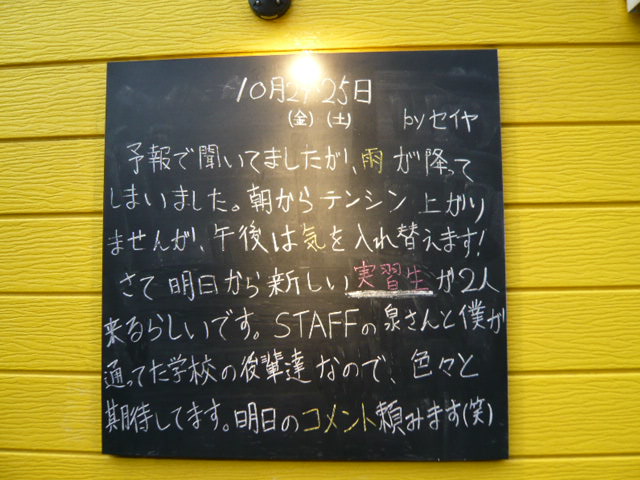 10月24・25日
(金) (土) byセイヤ
予報で聞いてましたが、雨が降って
しまいました。朝からテンシン上がり
ませんが、午後は気を入れ替えます!
さて明日から新しい実習生が2人
来るらしいです。STAFFの泉さんと僕が
通ってた学校の後輩達なので、色々と
期待してます。明日のコメント頼みます(笑)